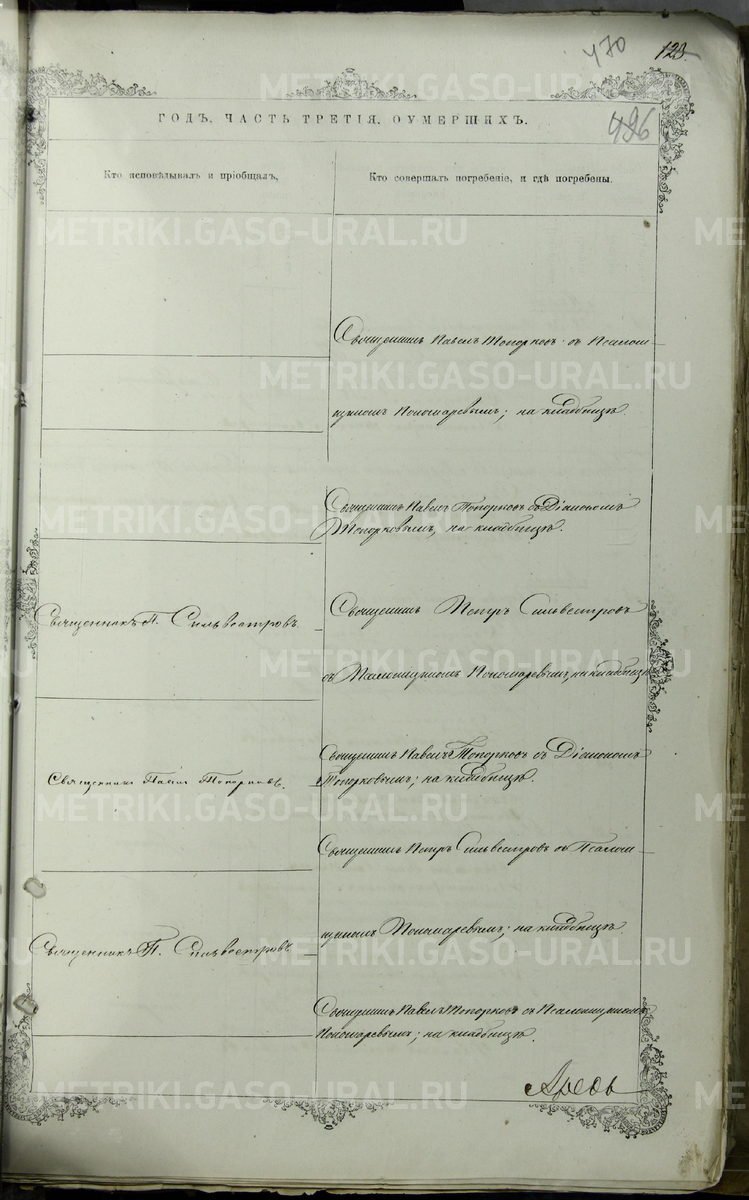 470
123.
ГОДЪ, ЧАСТЬ ТРЕТІЯ, ОУМЕРШИХЪ.
496
Кто исповѣдывалъ и пріобщалъ,
Кто совершалъ погребеніе, и гдѣ погребены.
Священникъ Павелъ Топорковъ съ Псалом-
щикомъ Пономаревымъ; на кладбищѣ.
Священникъ Павелъ Топорковъ съ Діакономъ
Топорковымъ, на кладбищѣ.
Священникъ П. Сильвестровъ.
Священникъ Петръ Сильвестровъ
съ Псаломщикомъ Пономаревымъ, на кладбищѣ
Священникъ Павелъ Топорковъ съ Діакономъ
Священникъ Павелъ Топорковъ.
Топорковымъ; на кладбищѣ.
Священникъ Петръ Сильвестровъ съ Псалом-
щикомъ Пономаревымъ; на кладбищѣ.
Священникъ П. Сильвестровъ
Священникъ Павелъ Топорковъ съ Псаломщикомъ
Пономаревымъ; на кладбищѣ.
METRIKI.GASO-URAL.RU